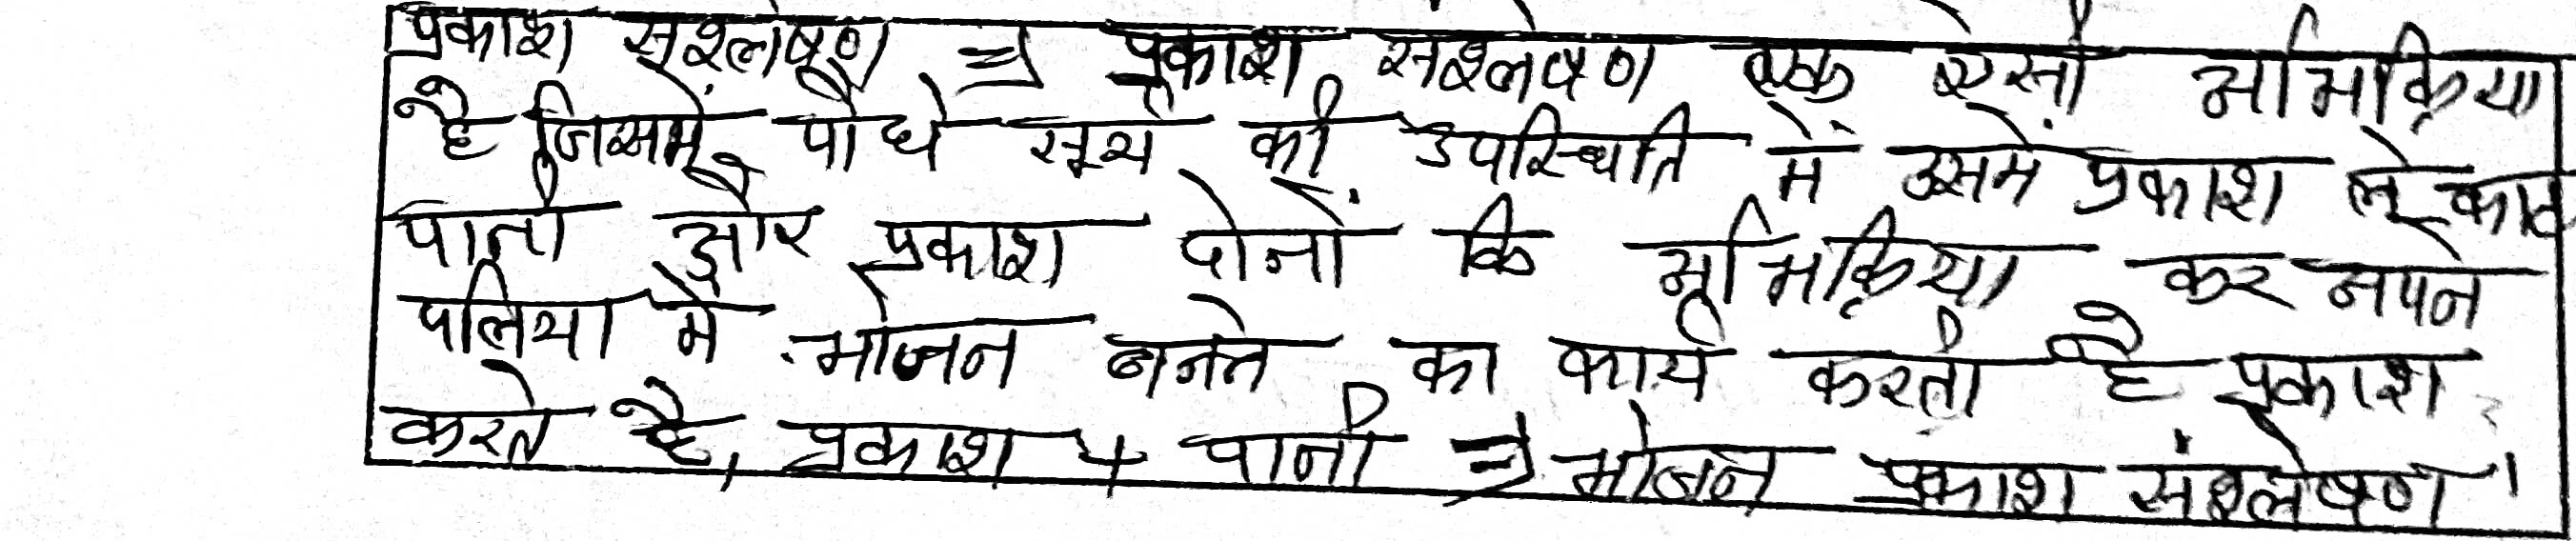 प्रकाश संश्लेषण ⇒ प्रकाश संश्लेषण एक ऐसी अभिक्रिया
है जिसमें पौधे सूर्य की उपस्थिति में उसमें प्रकाश लेकर
पानी और प्रकाश दोनों कि अभिक्रिया कर अपने
पत्तिया में भोजन बनने का कार्य करती है प्रकाश
करते है, प्रकाश + पानी ⇒ भोजन प्रकाश संश्लेषण।